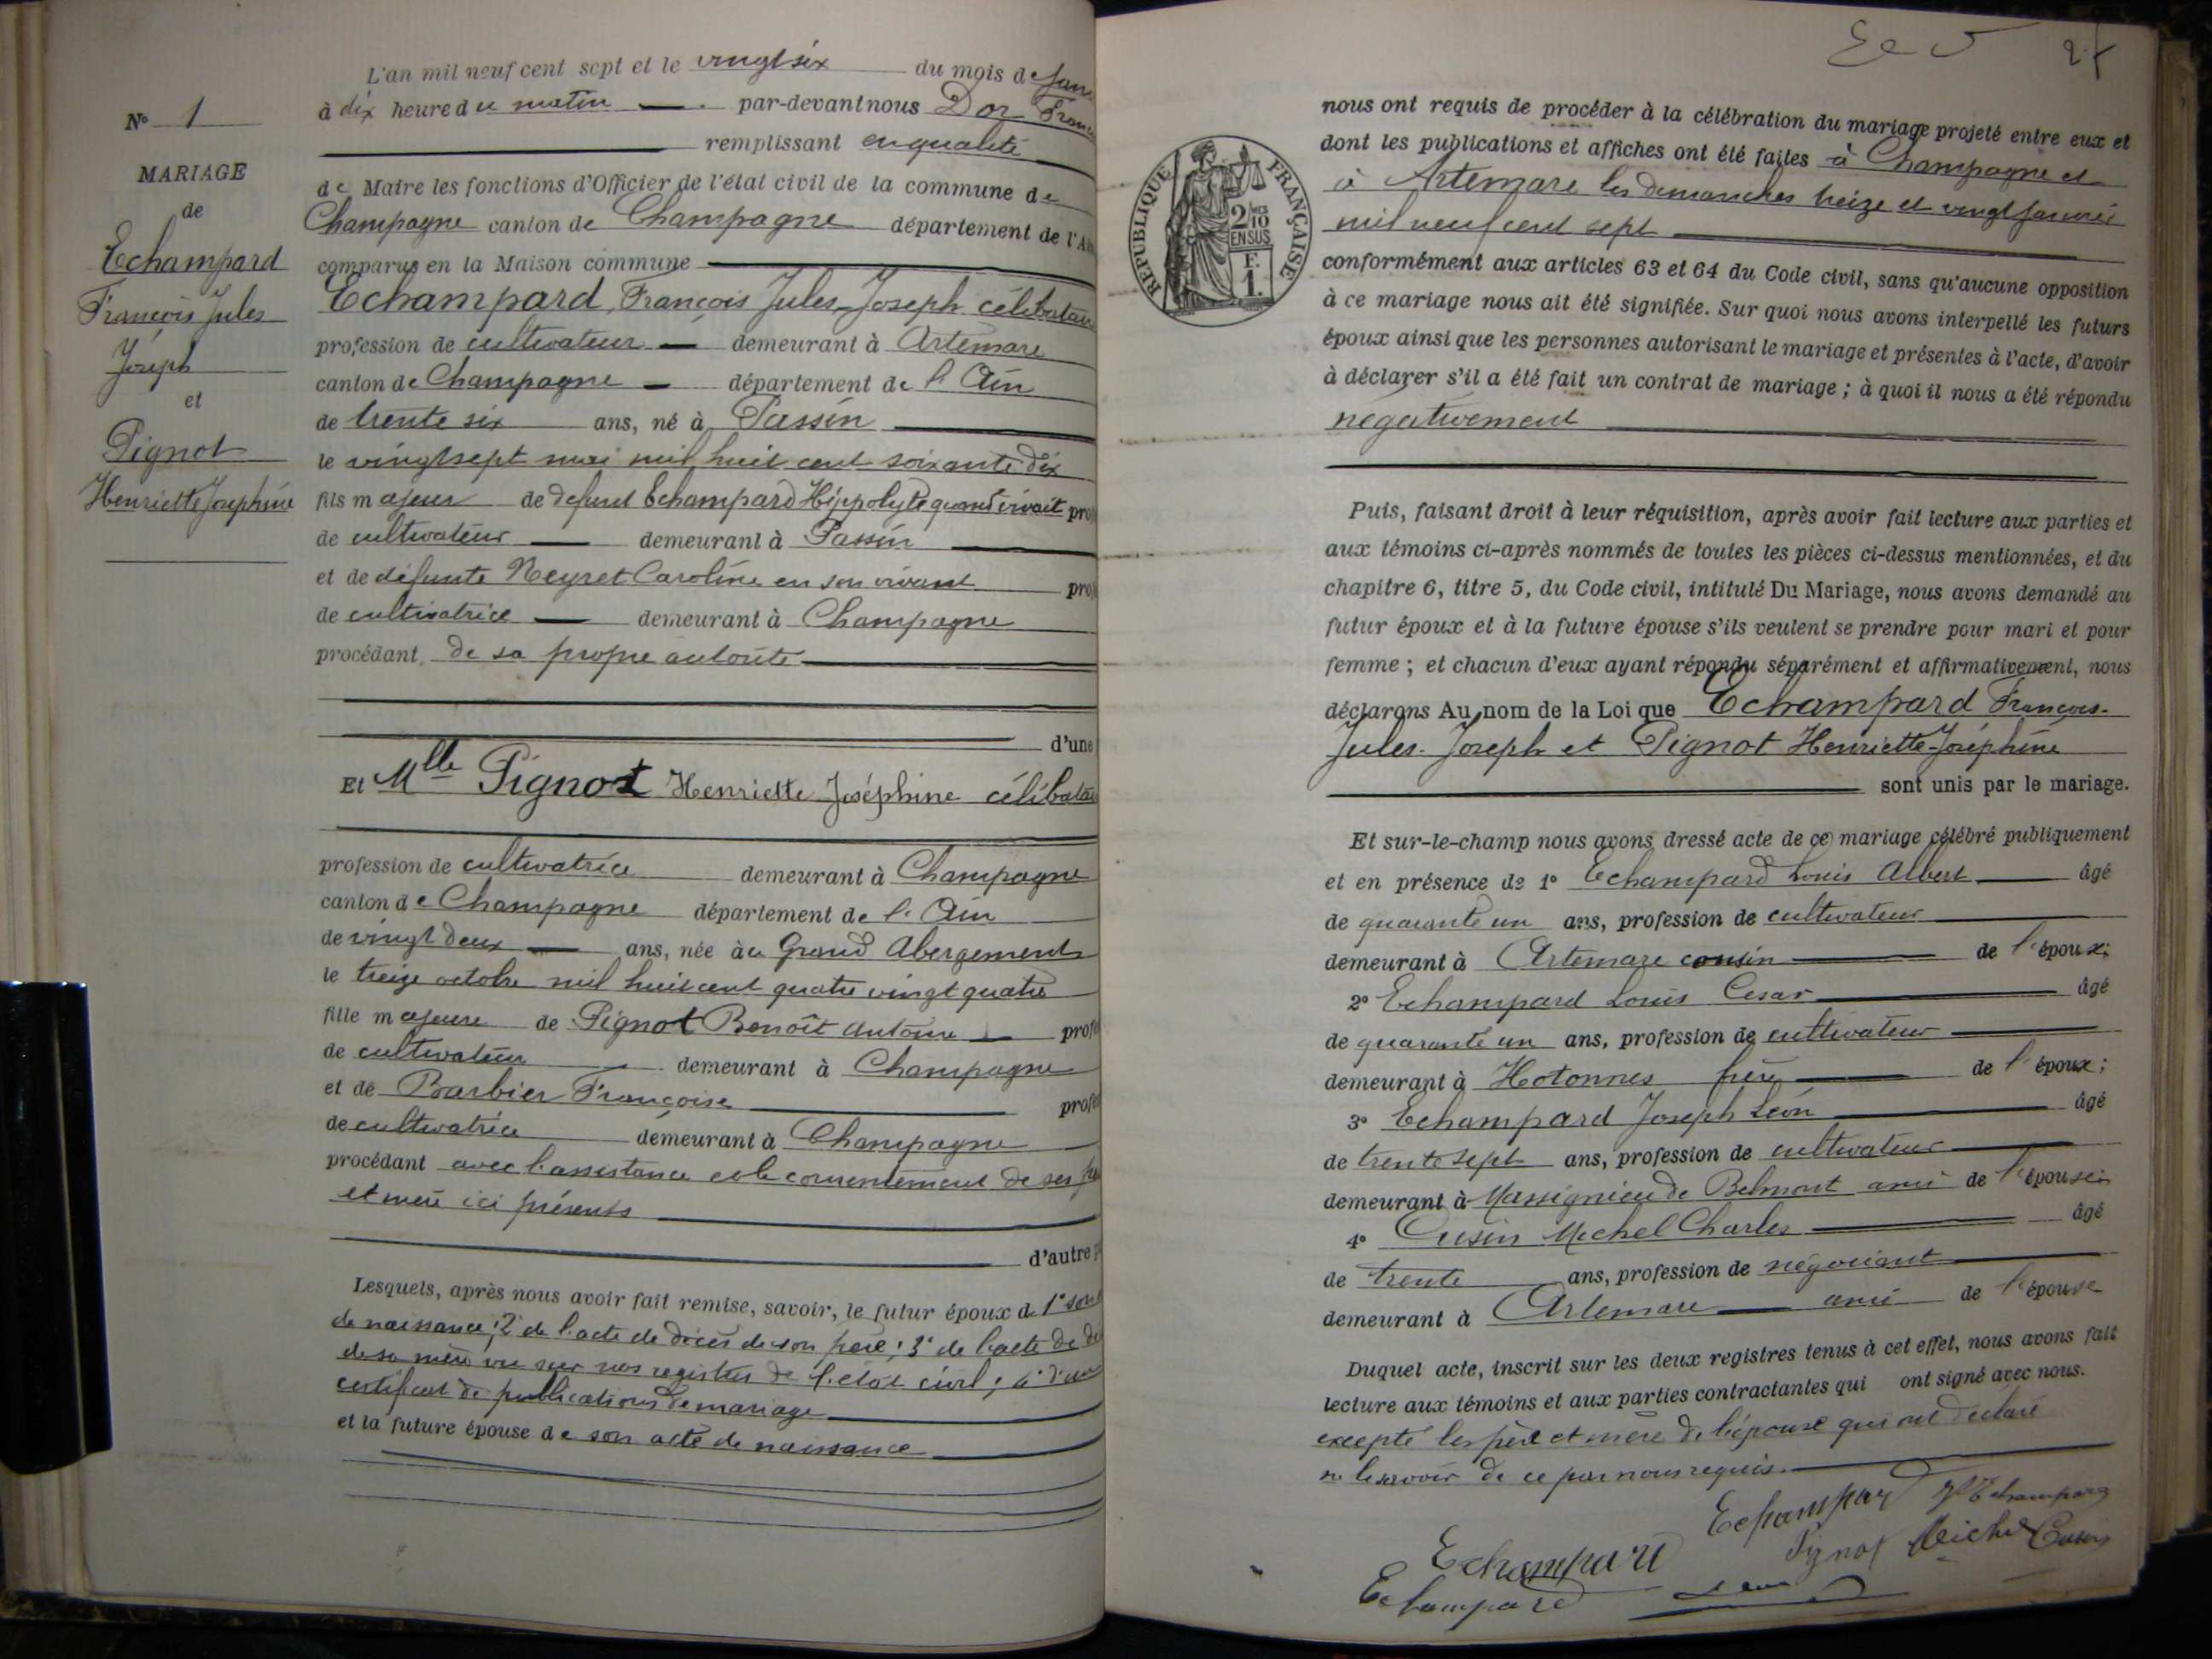 N° 1
MARIAGE
de
Echampard
François Jules
Joseph
et
Pignot
Henriette Joséphine
L'an mil neuf cent sept et le vingt six du mois de Janv
à dix heure du matin par-devant nous Dor Franc
remplissant en qualité
de Maire les fonctions d'Officier de l'état civil de la commune de
Champagne canton de Champagne département de l'Ain
comparus en la Maison commune
Echampard, François Jules Joseph célibatair
profession de cultivateur demeurant à Artemare
canton de Champagne département de l'Ain
de trente six ans, né à Passin
le vingt sept mai mil huit cent soixante dix
fils majeur de defunt Echampard Hippolyte quand vivait pro
de cultivateur demeurant à Passin
et de défunte Neyret Caroline en son vivant pro
de cultivatrice demeurant à Champagne
procédant de sa propre autorité
d'une
Et Mlle Pignot Henriette Joséphine célibatai
profession de cultivatrice demeurant à Champagne
canton de Champagne département de l'Ain
de vingt deux ans, née au Grand Abergement
le treize octobre mil huit cent quatre vingt quatre
fille majeure de Pignot Benoît Antoine profe
de cultivateur demeurant à Champagne
et de Barbier Françoise profe
de cultivatrice demeurant à Champagne
procédant avec l'assistance et le consentement de ses pè
et mère ici présents
d'autre p
Lesquels, après nous avoir fait remise, savoir, le futur époux de 1° son
de naissance; 2° de l'acte de décès de son père; 3° de l'acte de dé
de sa mère vu sur nos registres de l'état civil; 4° d'un
certificat de publications de mariage
et la future épouse de son acte de naissance
nous ont requis de procéder à la célébration du mariage projeté entre eux et
dont les publications et affiches ont été faites à Champagne et
à Artemare les dimanches treize et vingt janvier
mil neuf cent sept
RÉPUBLIQUE FRANÇAISE
2/10 MES
EN SUS
F.
1.
conformément aux articles 63 et 64 du Code civil, sans qu'aucune opposition
à ce mariage nous ait été signifiée. Sur quoi nous avons interpellé les futurs
époux ainsi que les personnes autorisant le mariage et présentes à l'acte, d'avoir
à déclarer s'il a été fait un contrat de mariage ; à quoi il nous a été répondu
négativement
Puis, faisant droit à leur réquisition, après avoir fait lecture aux parties et
aux témoins ci-après nommés de toutes les pièces ci-dessus mentionnées, et du
chapitre 6, titre 5, du Code civil, intitulé Du Mariage, nous avons demandé au
futur époux et à la future épouse s'ils veulent se prendre pour mari et pour
femme ; et chacun d'eux ayant répondu séparément et affirmativement, nous
déclarons Au nom de la Loi que Echampard François-
Jules-Joseph et Pignot Henriette-Joséphine
sont unis par le mariage.
Et sur-le-champ nous avons dressé acte de ce mariage célébré publiquement
et en présence de 1° Echampard Louis Albert âgé
de quarante un ans, profession de cultivateur
demeurant à Artemare cousin de l'époux;
2° Echampard Louis Cesar âgé
de quarante un ans, profession de cultivateur
demeurant à Hotonnes frère de l'époux;
3° Echampard Joseph Léon âgé
de trente sept ans, profession de cultivateur
demeurant à Massignieu de Belmont ami de l'épouse;
4° Cusin Michel Charles âgé
de trente ans, profession de négociant
demeurant à Artemare ami de l'épouse
Duquel acte, inscrit sur les deux registres tenus à cet effet, nous avons fait
lecture aux témoins et aux parties contractantes qui ont signé avec nous.
excepté les père et mère de l'épouse qui ont déclaré
ne le savoir de ce par nous requis.
Echampard Echampard
Echampard Pignot Michel Cusin
Echampard